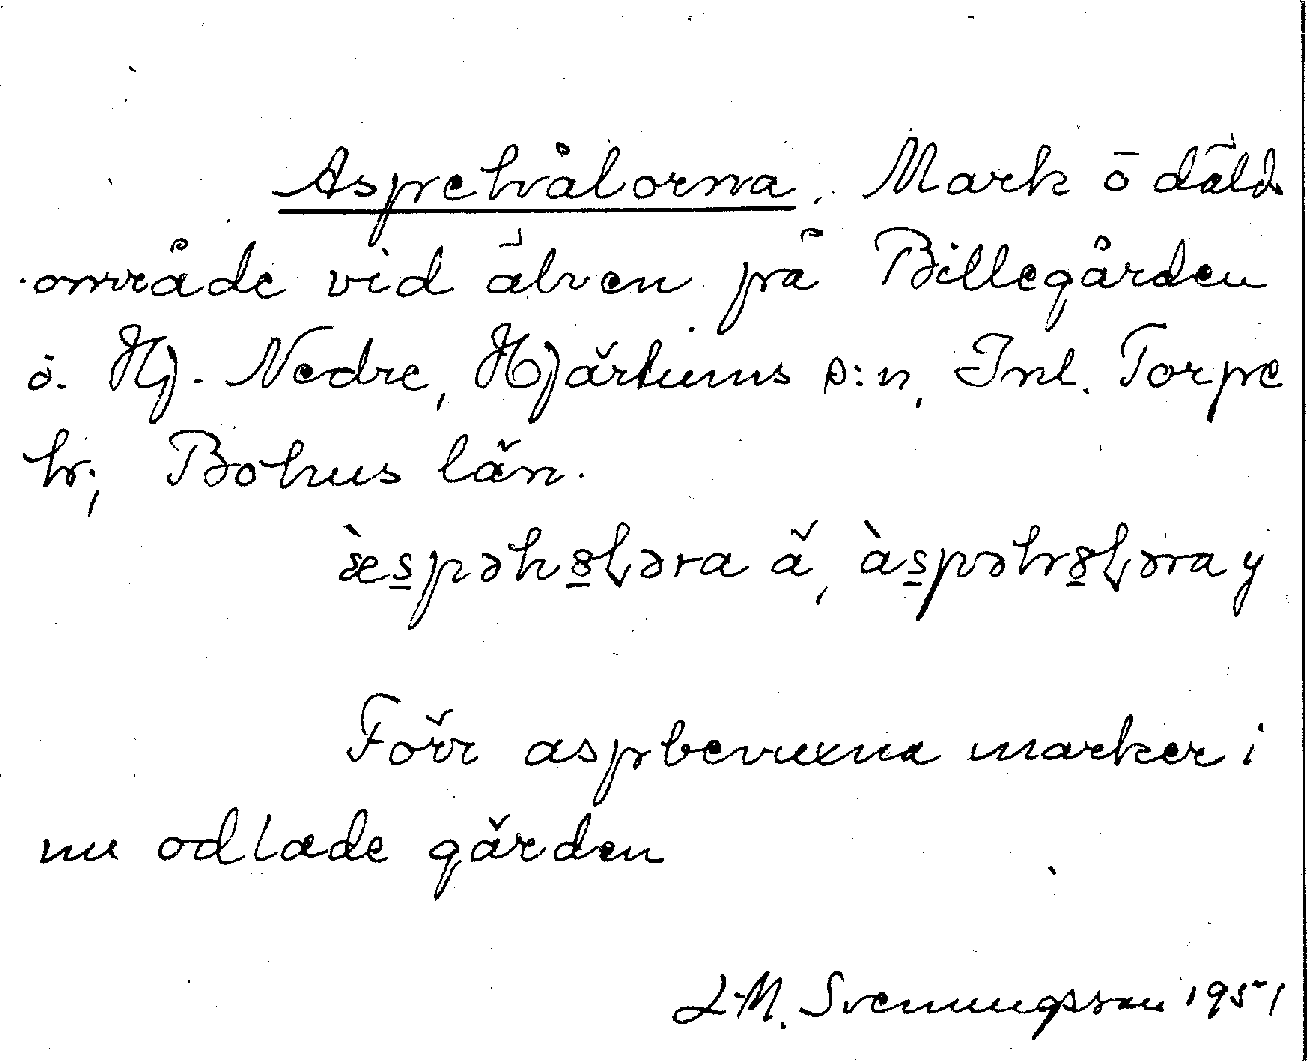 Aspehålorna. Mark ō däld
område vid älven på Billegården
ö. Hj. Nedre, Hjärtums s:n, Inl. Torpe
hr, Bohus län.
Förr aspbevuxna marker i
nu odlade gärden
L-M. Svenungsson 1951